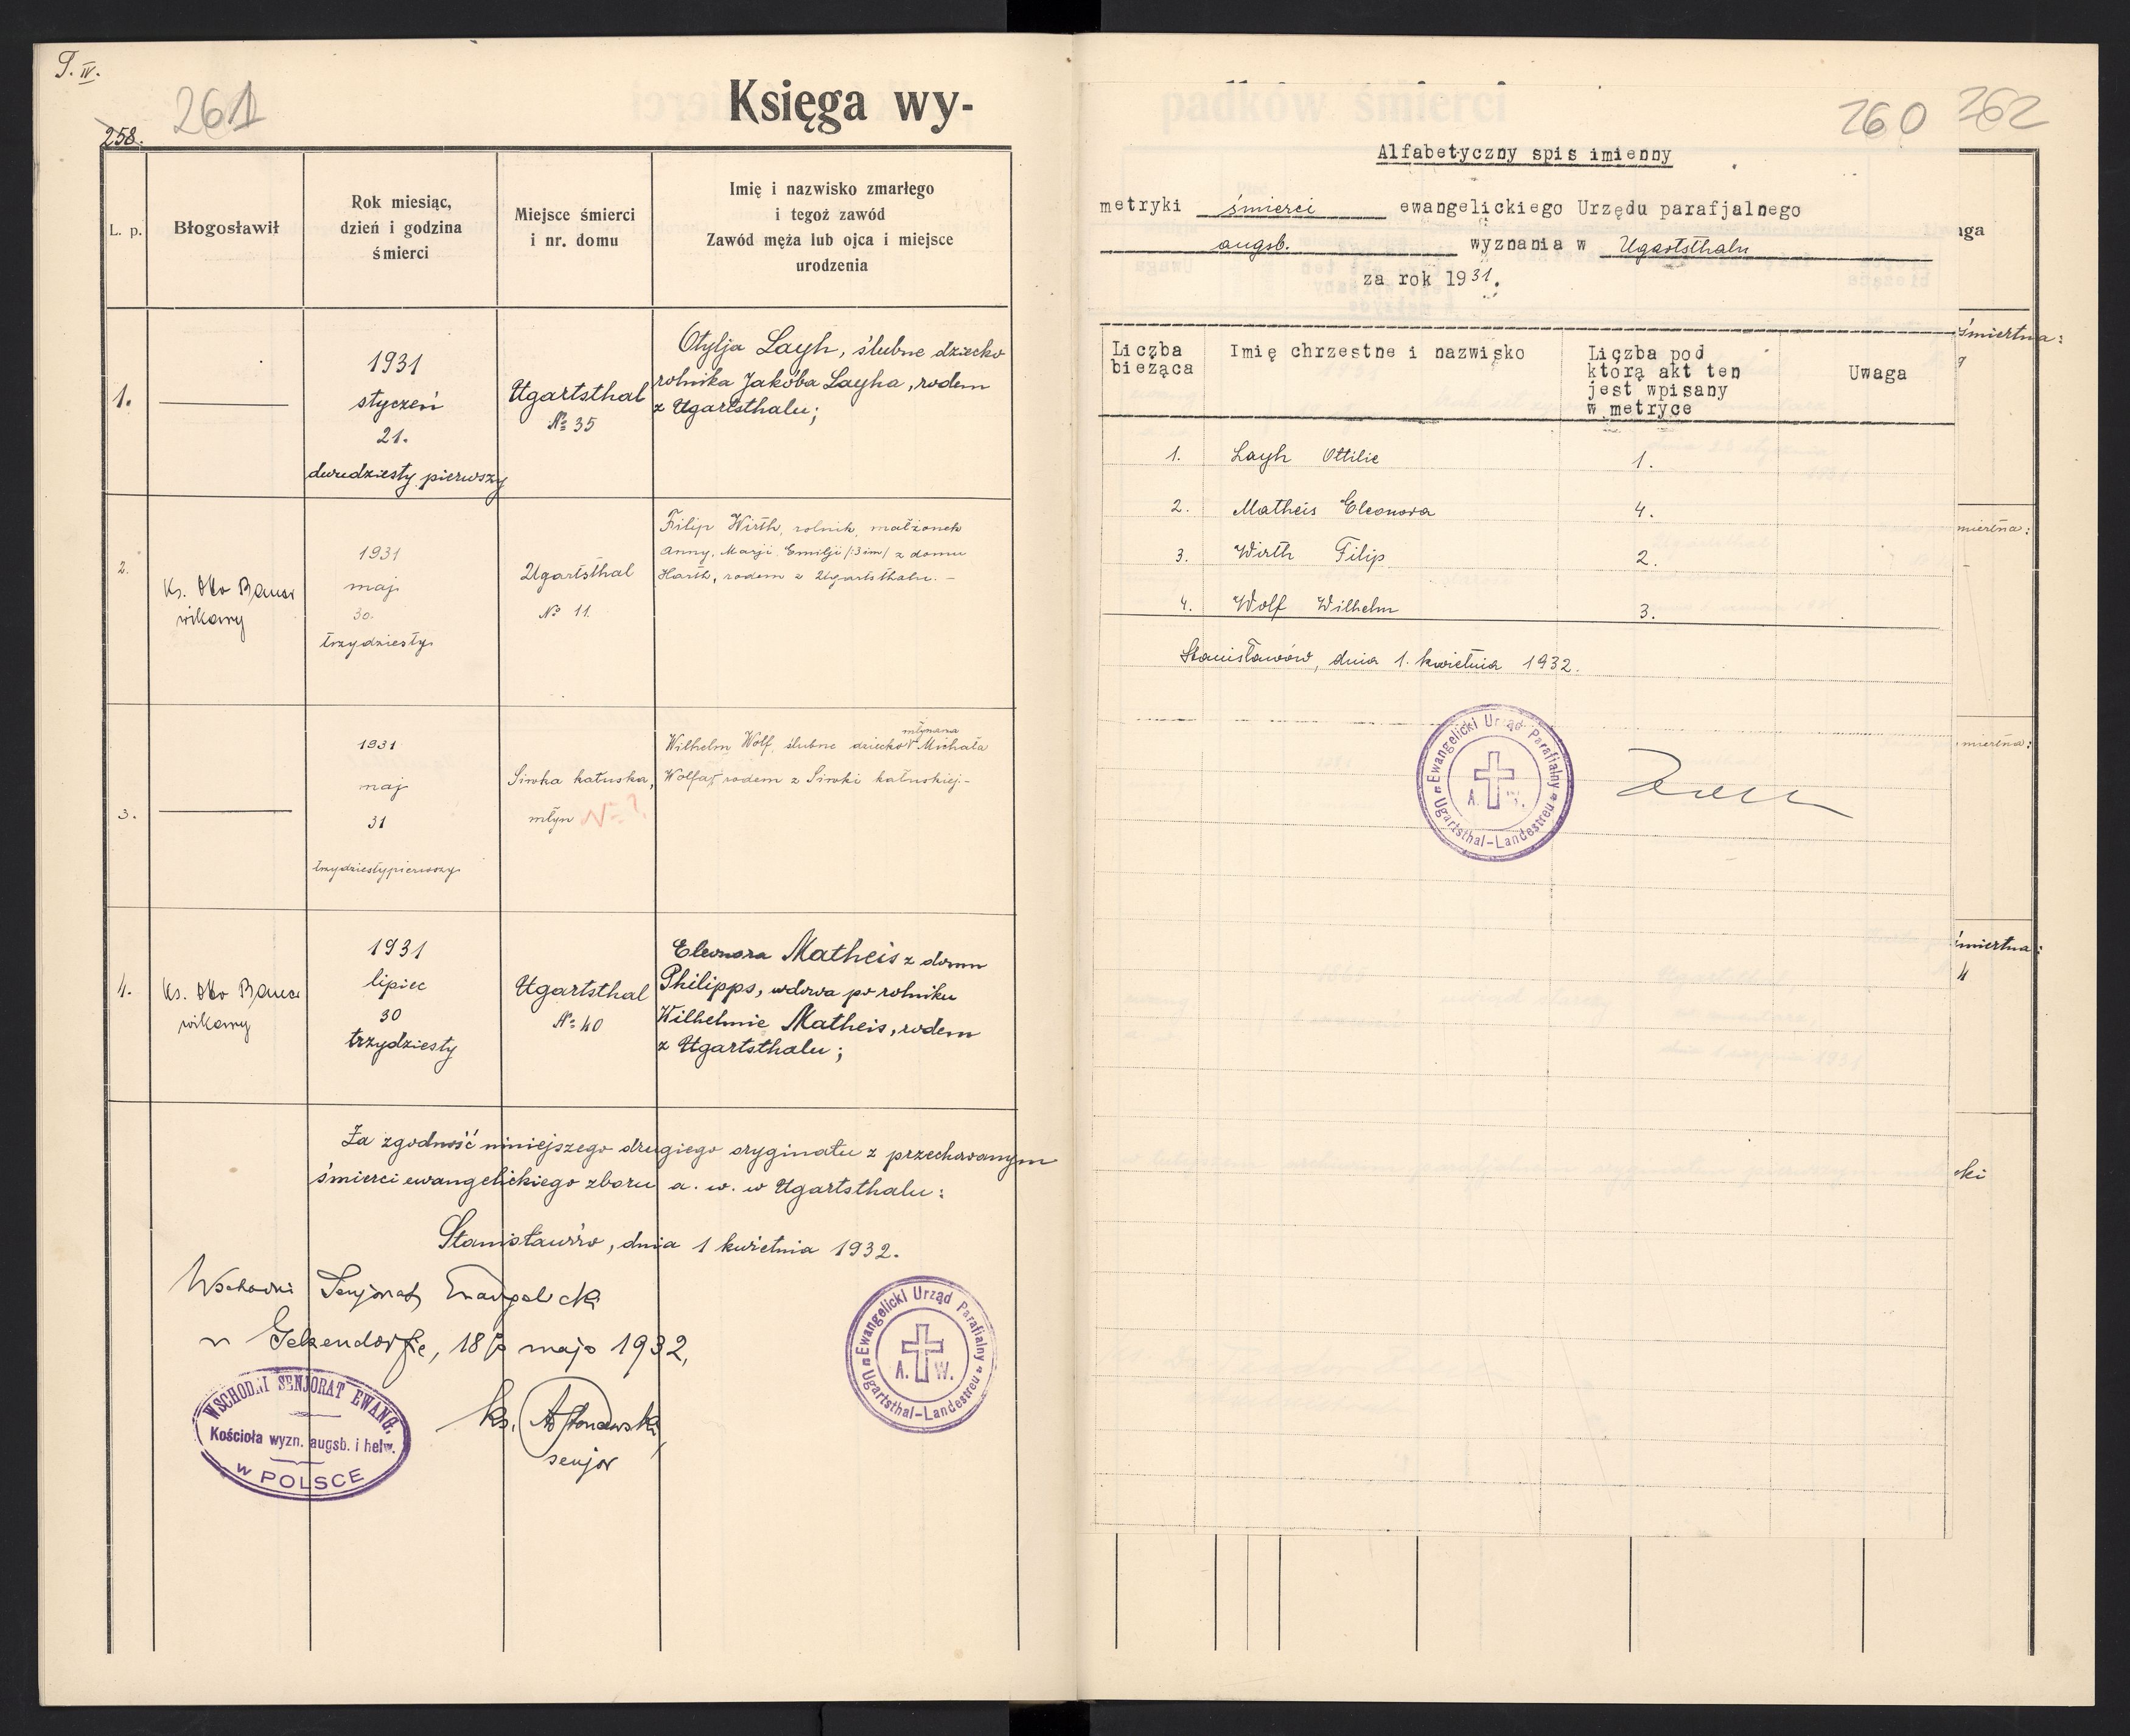 T. IV.
261
258.
Księga wy-
L. p.
Błogosławił
Rok miesiąc,
dzień i godzina
śmierci
Miejsce śmierci
i nr. domu
Imię i nazwisko zmarłego
i tegoż zawód
Zawód męża lub ojca i miejsce
urodzenia
1.
1931
styczeń
21.
dwudziesty pierwszy
Ugartsthal
№ 35
Otylja Layh, ślubne dziecko
rolnika Jakóba Layha, rodem
z Ugartsthalu;
2.
Ks. Otto Bauer
wikary
1931
maj
30.
trzydziesty
Ugartsthal
№ 11.
Filip Wirth, rolnik, małżonek
Anny, Marji, Emilji /:3 im/ z domu
Harth, rodem z Ugartsthalu. –
3.
1931
maj
31
trzydziestypierwszy
Siwka kałuska,
młyn №?
młynarza
Wilhelm Wolf, ślubne dziecko Michała
Wolfa, rodem z Siwki kałuskiej –
4.
Ks. Otto Bauer
wikary
1931
lipiec
30
trzydziesty
Ugartsthal
№ 40
Eleonora Matheis z domu
Philipps, wdowa po rolniku
Wilhelmie Matheis, rodem
z Ugartsthalu;
Za zgodność niniejszego drugiego oryginału z przechowanym
śmierci ewangelickiego zboru a. w. w Ugartsthalu:
Stanisławów, dnia 1 kwietnia 1932.
Wschodni Senjorat Ewangelicki
w Gelsendorfie, 18 maja 1932,
Ks.
senjor
WSCHODNI SENJORAT EWANG.
Kościoła wyzn. augsb. i helw.
w POLSCE
Ewangelicki Urząd Parafialny
A. W.
Ugartsthal-Landestreu
260 262
Alfabetyczny spis imienny
metryki śmierci ewangelickiego Urzędu parafjalnego
augsb. wyznania w Ugartsthalu
za rok 1931.
Liczba
bieząca
Imię chrzestne i nazwisko
Liczba pod
którą akt ten
jest wpisany
w metryce
Uwaga
1. Layh Ottilie 1.
2. Matheis Eleonora 4.
3. Wirth Filip 2.
4. Wolf Wilhelm 3.
Stanisławów, dnia 1. kwietnia 1932.
Ewangelicki Urząd Parafialny
A. W.
Ugartsthal-Landestreu
ga
śmiertna:
miertna:
miertna:
śmiertna:
4
cki